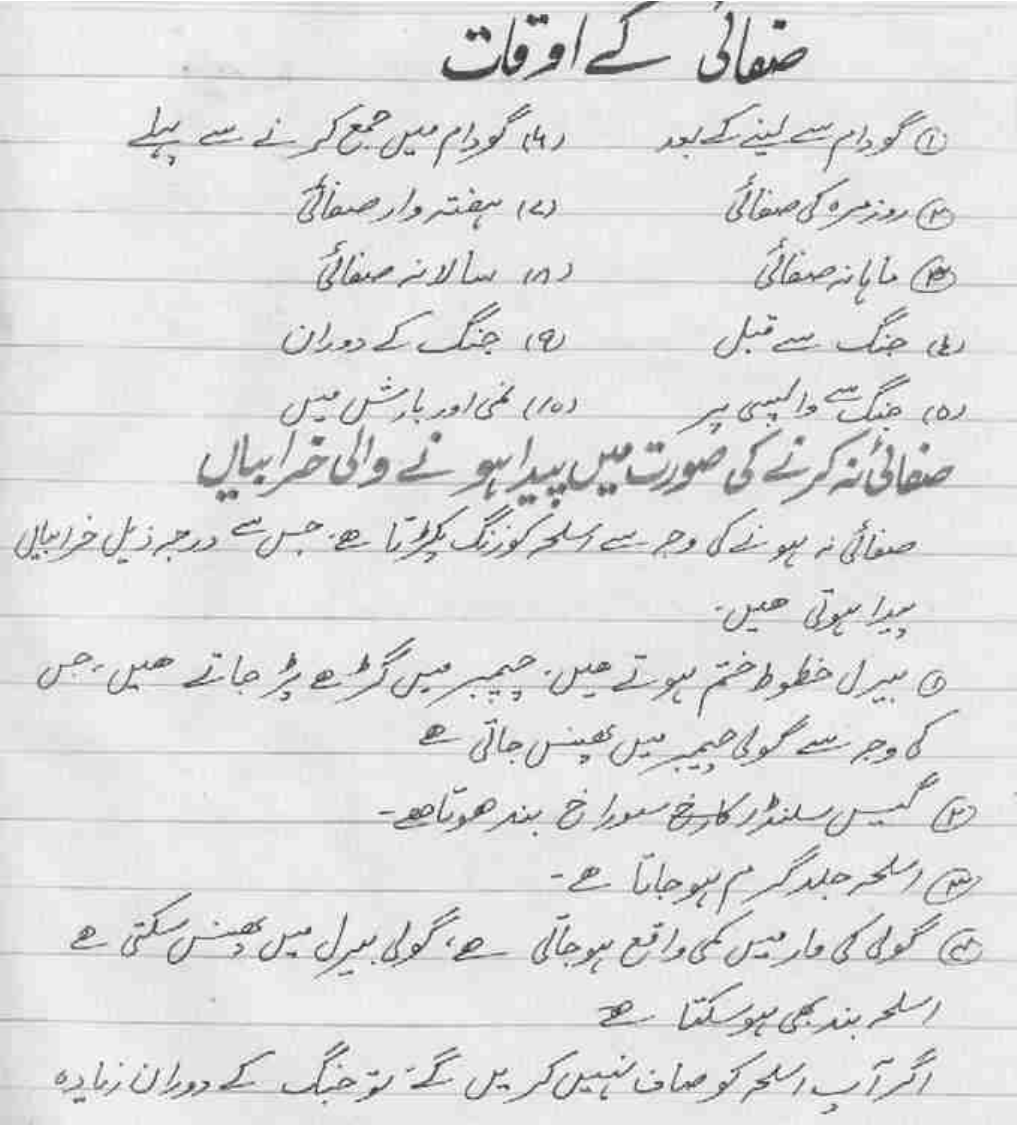 صفائی کے اوقات
① گودام سے لینے کے بعد (۶) گودام میں جمع کرنے سے پہلے
② روزمرہ کی صفائی (۷) ہفتہ وار صفائی
③ ماہانہ صفائی (۸) سالانہ صفائی
(۴) جنگ سے قبل (۹) جنگ کے دوران
(۵) جنگ سے واپسی پر (۱۰) نمی اور بارش میں
صفائی نہ کرنے کی صورت میں پیدا ہونے والی خرابیاں
صفائی نہ ہونے کی وجہ سے اسلحہ کو زنگ پکڑتا ہے۔ جس سے درجہ ذیل خرابیاں
پیدا ہوتی ھیں۔
① بیرل خطوط ختم ہوتے ھیں۔ چیمبر میں گڑھے پڑ جاتے ھیں، جس
کی وجہ سے گولی چیمبر میں پھنس جاتی ھے
② گیس سلنڈر کا سوراخ بند ھوتا ھے۔
③ اسلحہ جلد گرم ہوجاتا ھے۔
④ گولی کی مار میں کمی واقع ہوجاتی ھے، گولی بیرل میں پھنس سکتی ھے
اسلحہ بند بھی ہوسکتا ھے
اگر آپ اسلحہ کو صاف نہیں کریں گے تو جنگ کے دوران زیادہ